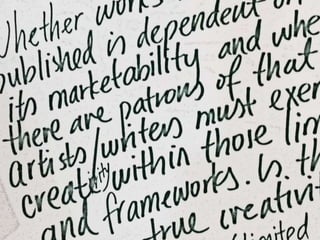 Whether works
published is dependent on
its marketability and whe
there are patrons of that
artists/writers must exer
creativity within those lim
and frameworks. Is th
true creativi
limited